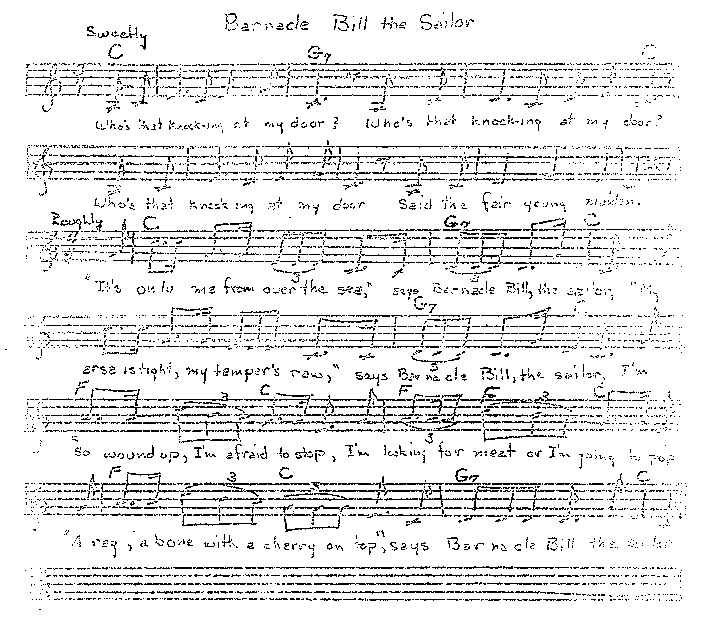 Barnacle Bill the Sailor
Sweetly
C G7 C
Who's that knock-ing at my door? Who's that knock-ing at my door?
Who's that knock-ing at my door Said the fair young maiden.
Roughly C G7 C
3 3
"It's only me from over the sea," says Barnacle Bill, the sailor, "My
G7
3
arse is tight, my temper's raw," says Barnacle Bill, the sailor, I'm
F 3 C F 3 C
3
"So wound up, I'm afraid to stop, I'm looking for meat or I'm going to pop
F 3 C 3 G7 C
"A rag, a bone with a cherry on top", says Barnacle Bill the sailor